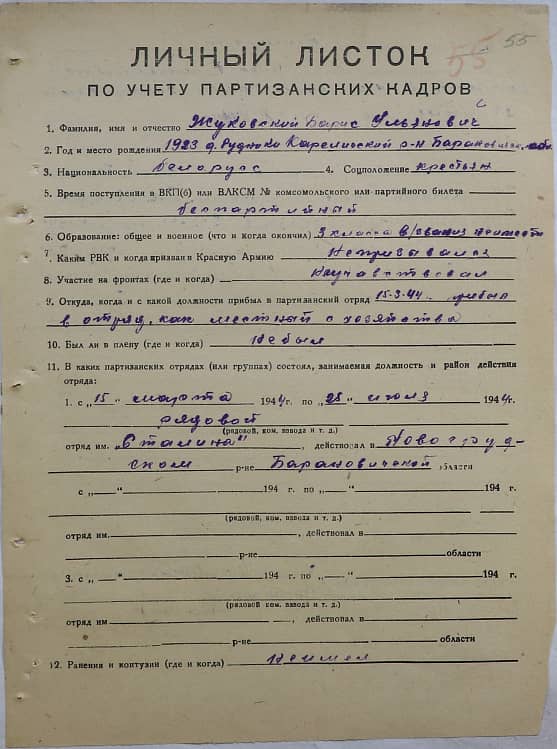 55 55
ЛИЧНЫЙ ЛИСТОК
ПО УЧЕТУ ПАРТИЗАНСКИХ КАДРОВ
1. Фамилия, имя и отчество Жуковский Барис Ульянович
2. Год и место рождения 1923 д. Рудники Кареличский р-н Барановичск. обл.
3. Национальность Беларус 4. Соцположение крестьян
5. Время поступления в ВКП(б) или ВЛКСМ № комсомольского или партийного билета
беспартийный
6. Образование: общее и военное (что и когда окончил) 3 класса в/звания
7. Каким РВК и когда призван в Красную Армию Непризывался
8. Участие на фронтах (где и когда) Неучаствовал
9. Откуда, когда и с какой должности прибыл в партизанский отряд 15-3-44 прибыл
в отряд, как местный с хозяйства
10. Был ли в плену (где и когда) Небыл
11. В каких партизанских отрядах (или группах) состоял, занимаемая должность и район действия
отряда:
1. с „15“ марта 1944 г. по „25“ июля 1944 г.
рядовой
(рядовой, ком. взвода и т. д.)
отряд им. "Сталина", действовал в Новогруд-
ском р-не Барановичской области
с „—“ 194 г. по „—“ 194 г.
(рядовой, ком. взвода и т. д.)
отряд им. , действовал в
р-не области
3. с „—“ 194 г. по „—“ 194 г.
(рядовой, ком. взвода и т. д.)
отряд им , действовал в
р-не области
12. Ранения и контузии (где и когда) Неимел